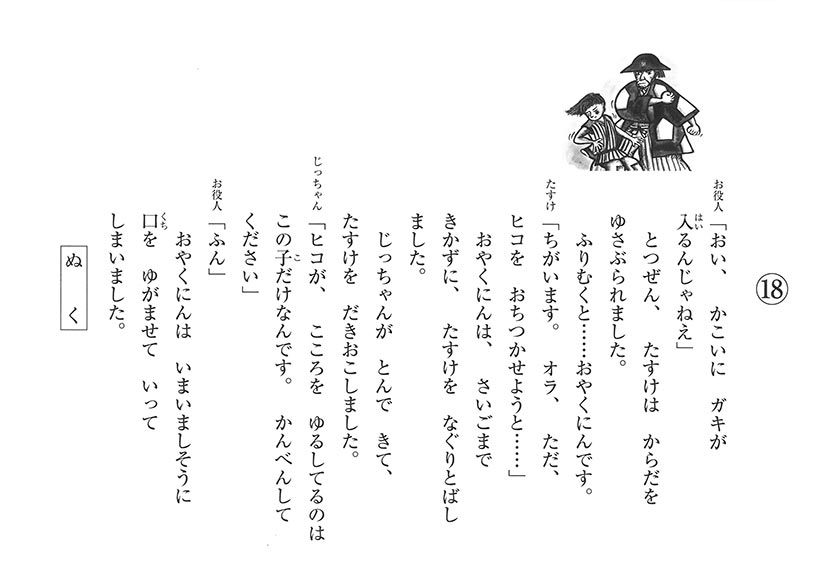 ⑱
お役人「おい、 かこいに ガキが
入るんじゃねえ」
とつぜん、 たすけは からだを
ゆさぶられました。
ふりむくと……おやくにんです。
たすけ「ちがいます。 オラ、 ただ、
ヒコを おちつかせようと……」
おやくにんは、 さいごまで
きかずに、 たすけを なぐりとばし
ました。
じっちゃんが とんで きて、
たすけを だきおこしました。
じっちゃん「ヒコが、 こころを ゆるしてるのは
この子だけなんです。 かんべんして
ください」
お役人「ふん」
おやくにんは いまいましそうに
口を ゆがませて いって
しまいました。
ぬく